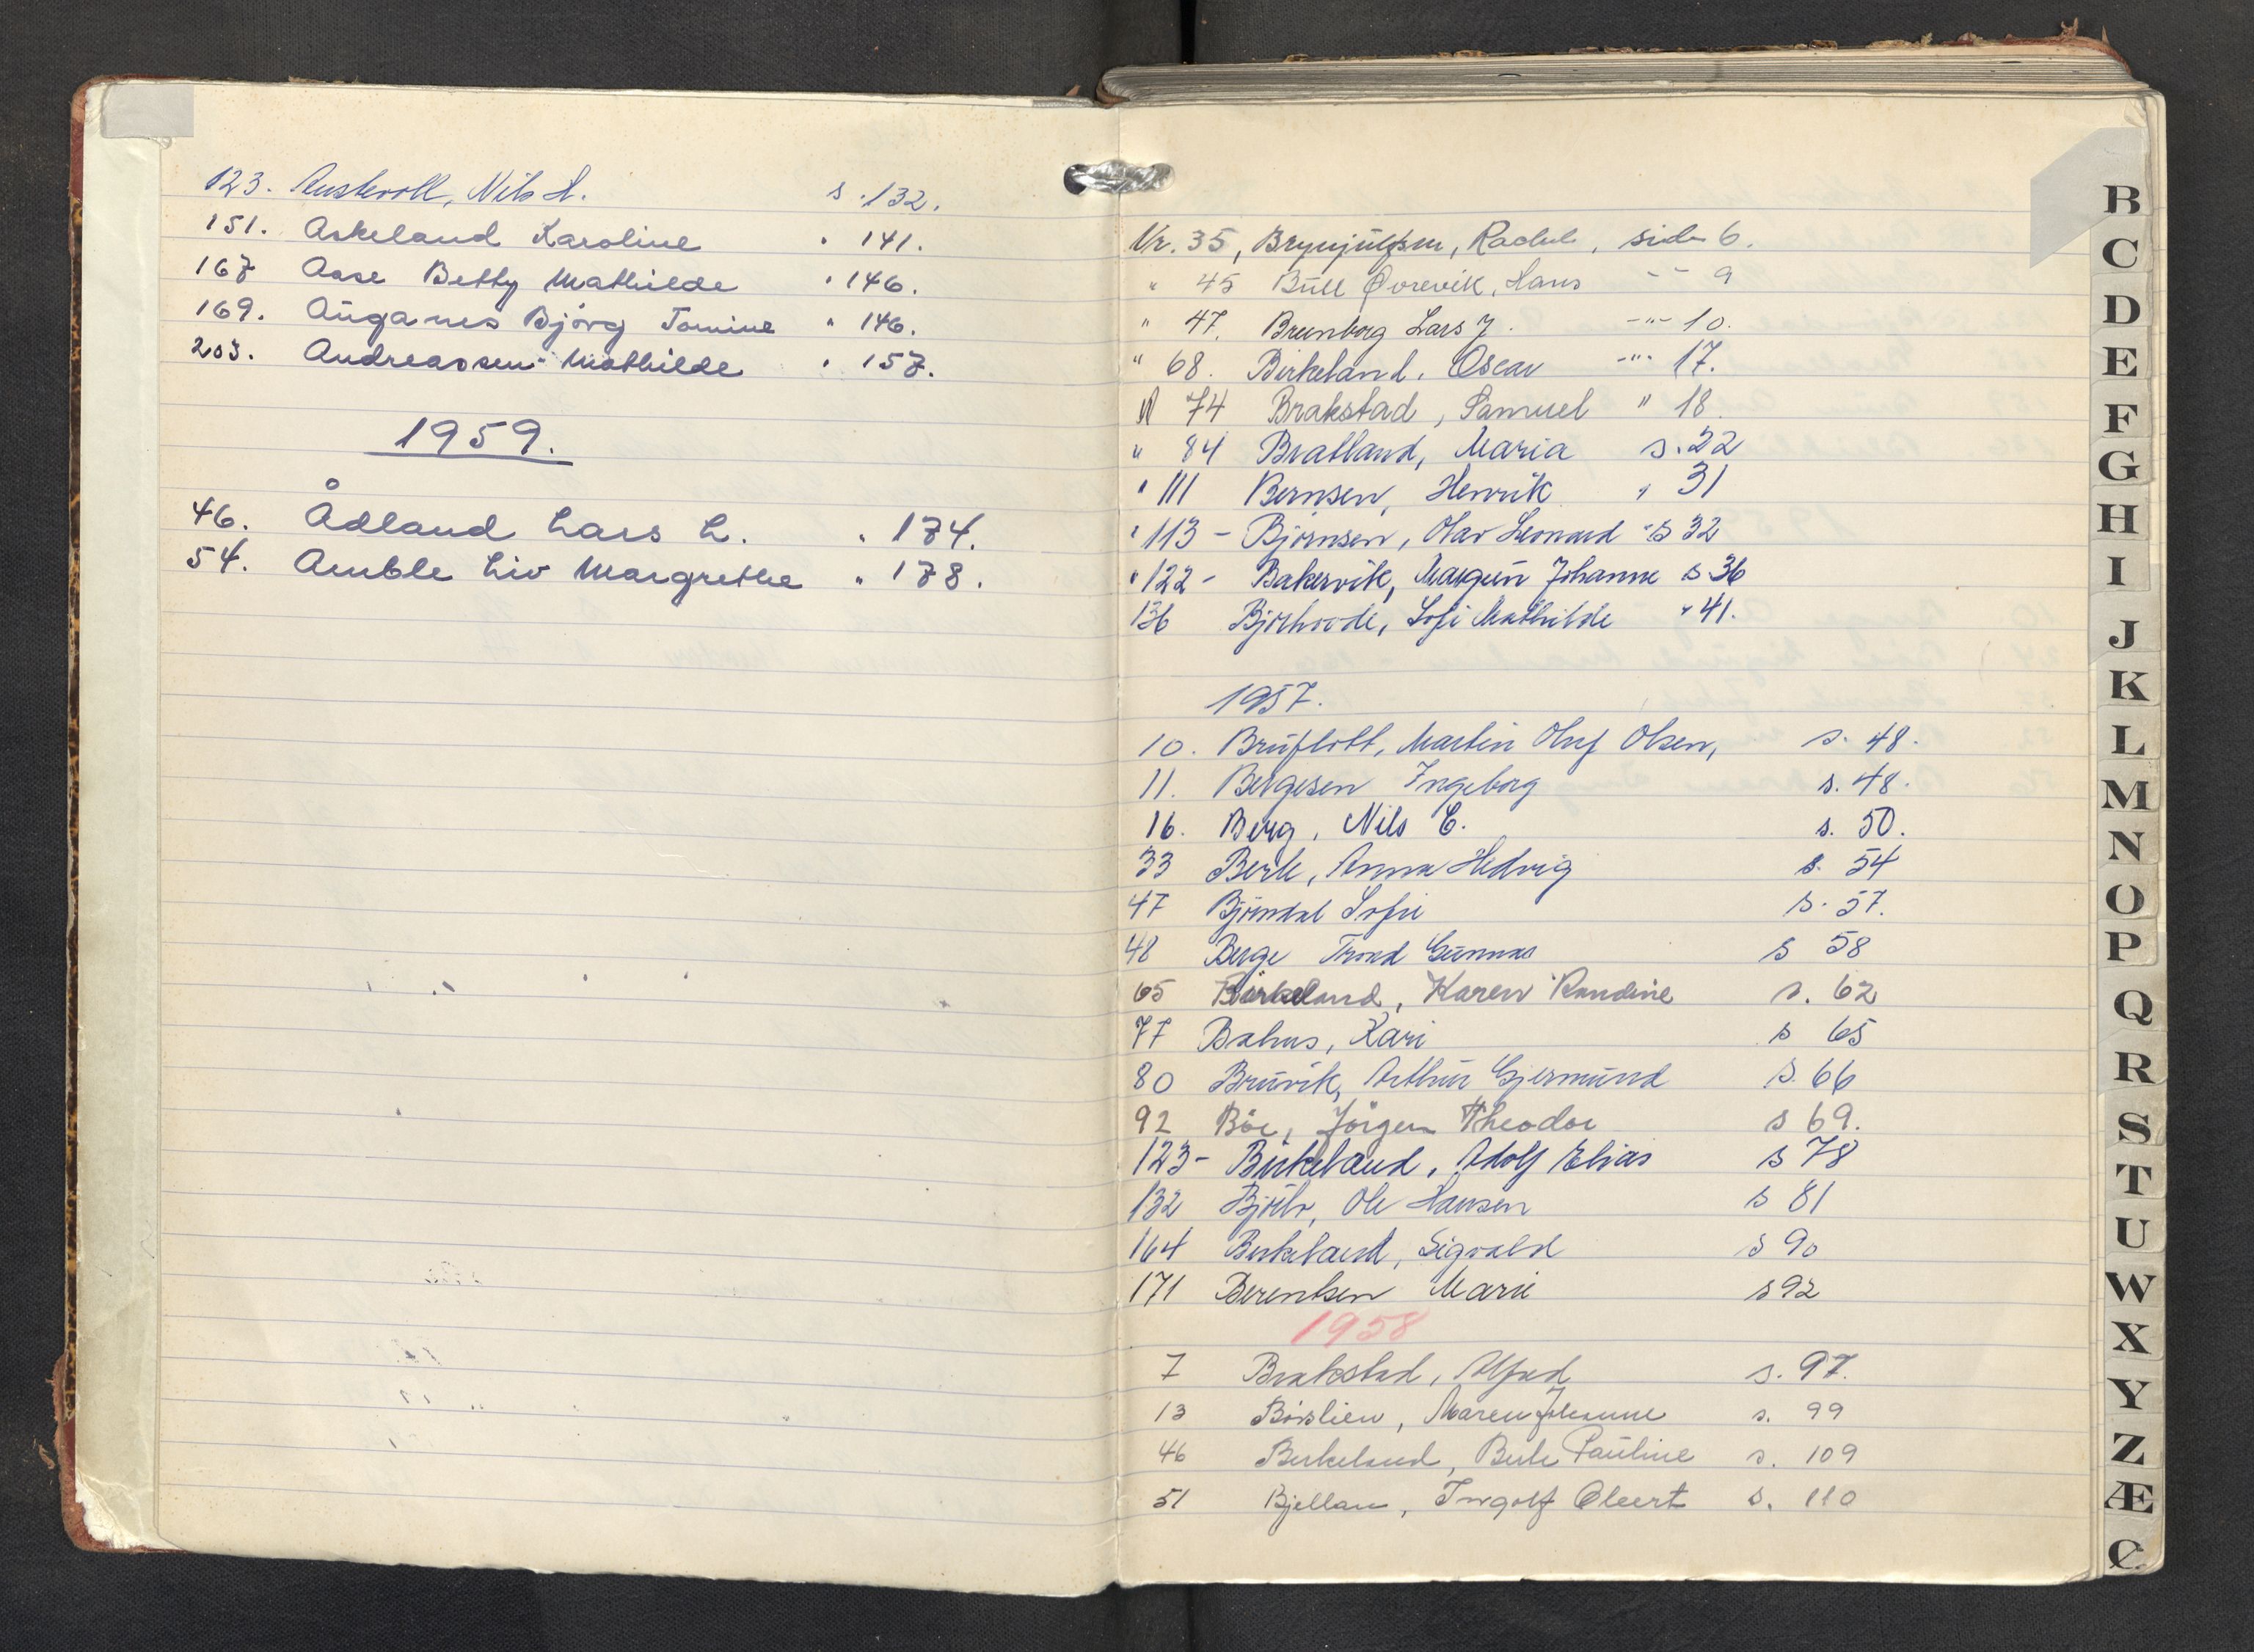 123. Austevoll, Nils H. s. 132.
151. Askeland Karoline " 141.
167 Aase Betty Mathilde " 146.
169. Auganes Bjørg Tomine " 146.
203. Andreassen Mathilde " 157.
1959.
46. Ådland Lars L. " 174.
54. Amble Liv Margrethe " 178.
Nr. 35, Brynjulfsen, Rachel, side 6.
" 45 Büll Øvrevik, Hans -"- 9
" 47. Brunborg Lars J. -"- 10.
" 68. Birkeland, Oscar -"- 17.
" 74 Brakstad, Samuel " 18.
" 84 Bratland, Maria s. 22
" 111 Bernsen, Henrik " 31
" 113 - Bjørnsen, Olav Leonard s 32
" 122 - Bakervik, Margun Johanne s 36
136 Bjørhovde, Sofi Mathilde " 41.
1957.
10. Bruflott, Martin Oluf Olsen, s. 48.
11. Bergesen Ingeborg s. 48.
16. Berg, Nils C. s. 50.
33 Berle, Anna Hedvig s. 54
47 Bjørndal Sofie s. 57.
48 Berge Trond Gunnar s 58
65 Birkeland, Karen Randine s. 62
77 Bahus, Kari s 65
80 Bruvik, Arthur Gjermund s. 66
92 Böe, Jörgen Theodor s 69.
123 - Birkeland, Adolf Elias s 78
132 Ole Hansen s 81
164 Birkeland, Sigvald s 90
171 Berentsen Marie s 92
1958
7 Brakstad, Alfred s. 97.
13 Börslien, Maren Johanne s. 99
46 Birkeland, Berle Pauline s. 109
51 Bjelland, Ingolf Cleert s. 110
B
C
D
E
F
G
H
I
J
K
L
M
N
O
P
Q
R
S
T
U
W
X
Y
Z
Æ
Ø